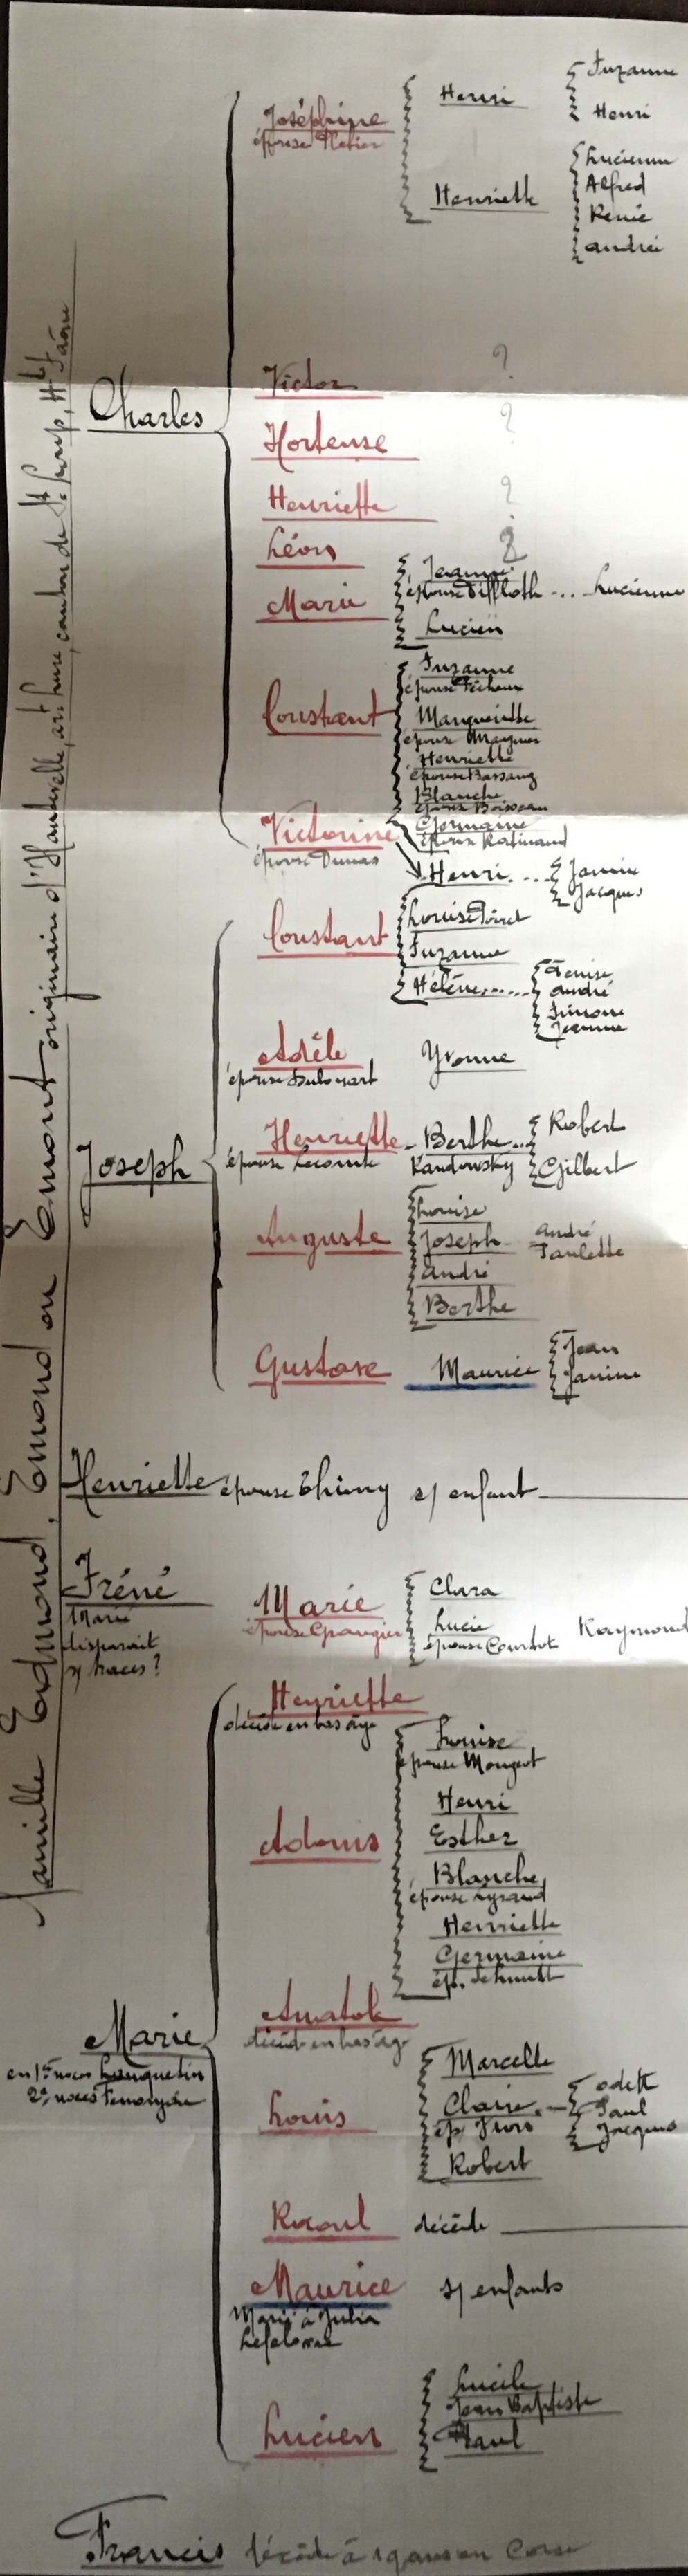 Famille Edmond, Emond ou Emont originaire d'Handevelle, art hure, canton de St Loup, Hte Saône
Charles
Joséphine
épouse
Henri
Suzanne
Henri
Henriette
Lucienne
Alfred
Renée
andrée
Victor ?
Hortense ?
Henriette ?
Léon ?
Marie
Jeanne
épouse Diffloth ... Lucienne
Lucien
Constant
Suzanne
épouse
Marguerite
épouse
Henriette
épouse Bassang
Blanche
épouse Boisseau
Germaine
épouse
Victorine
épouse Dumas
Henri ....
Janine
Jacques
Joseph
Constant
Louise
Suzanne
Hélène ......
Denise
André
Simone
Jeanne
Adèle
épouse
Yvonne
Henriette
épouse Lecomte
Berthe ...
Kandowsky
Robert
Gilbert
Auguste
Louise
Joseph
André
Paulette
André
Berthe
Gustave
Maurice
Jean
Janine
Henriette épouse Thiny s/ enfant
Iréné
Marié
disparait
s/ traces ?
Marie
épouse Grangier
Clara
Lucie
épouse Courtot
Raymond
Marie
en 1res noces Languetin
2e noces
Henriette
décédée en bas âge
Adonis
Louise
épouse Mougeot
Henri
Esther
Blanche
épouse
Henriette
Germaine
ép. Schmitt
Anatole
décédé en bas âge
Louis
Marcelle
Claire
ép.
odette
Paul
Jacques
Robert
Raoul décédé
Maurice s/ enfants
Marié à Julia
Lucien
Lucile
Jean Baptiste
Paul
Francis décédé à ans en Corse